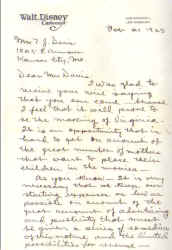 Walt Disney
Mrs T. J. Davis
Kansas City, Mo.
Dear Mrs Davis:
I was glad to
receive your wire saying
that you can come
I feel that it will prove to
be the making of Virginia.
It is an opportunity that is
hard to get on account of
the great number of mothers
that want to place their
children in the movies.
As you know it is very
necessary that we keep our
expenses as low as
possible on account of the
great amount of advertising
and publicity that must
be given a thing of
this nature and the limited
possibilities for revenue